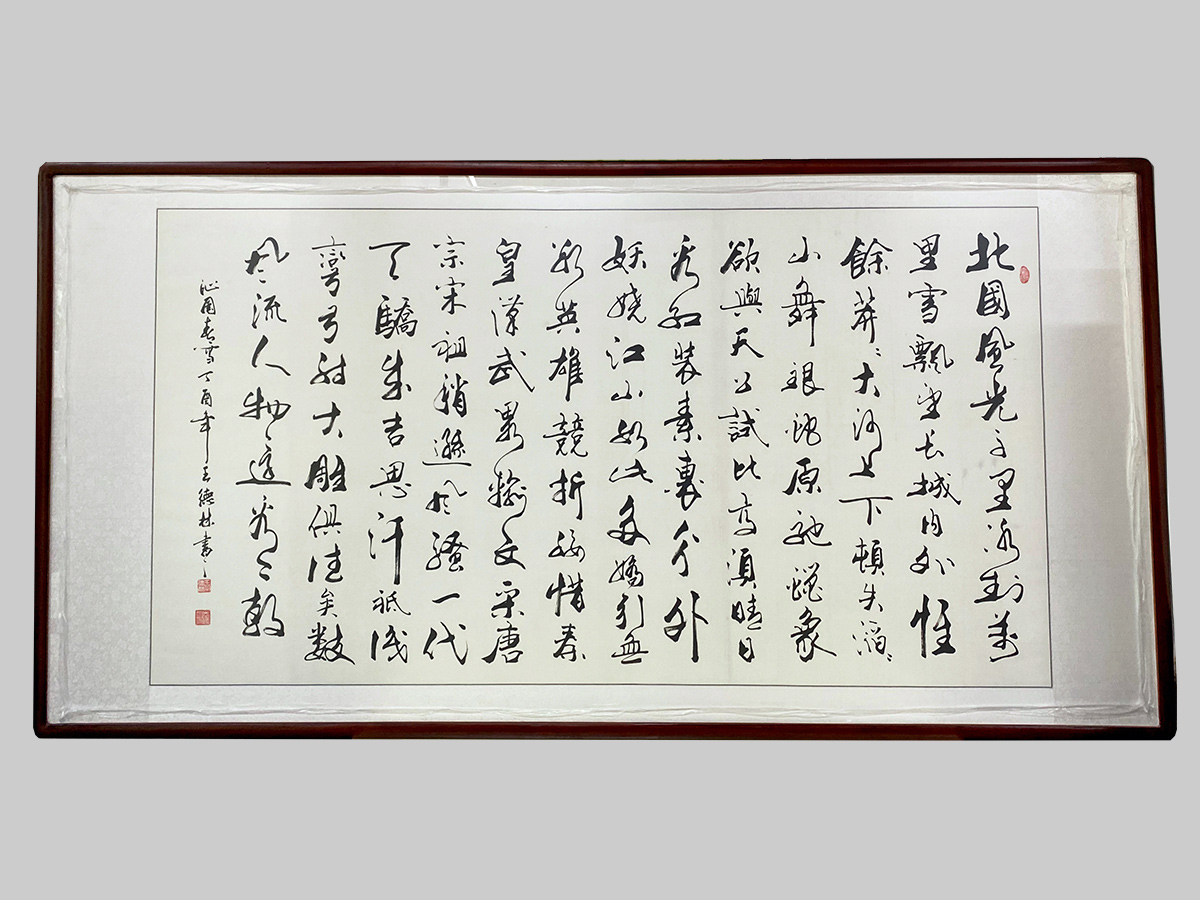 北國風光千里冰封萬
里雪飄望长城内外惟
餘莽々大河上下頓失滔々
山舞银蛇原驰蠟象
欲與天公試比高須晴日
看红装素裹分外
妖娆江山如此多嬌引無
數英雄競折腰惜秦
皇漢武略輸文采唐
宗宋祖稍遜风騷一代
天驕成吉思汗祗識
彎弓射大雕俱往矣數
风流人物還看今朝
沁園春雪丁酉年王德林書